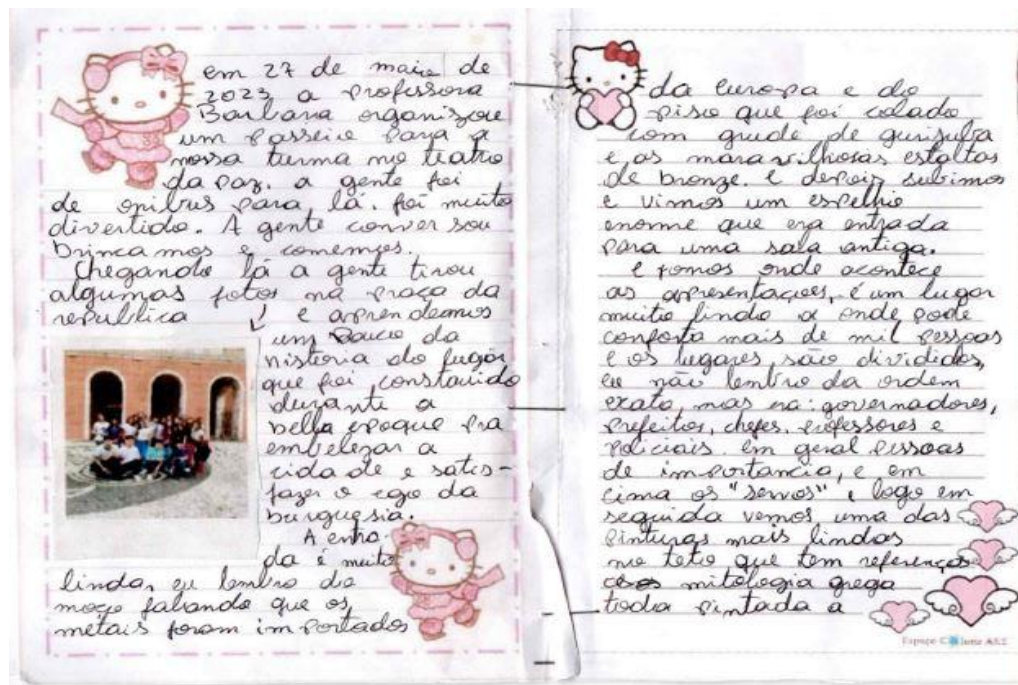 em 27 de maio de
2023 a professora
Barbara organizou
um passeio para a
nossa turma no teatro
da paz. a gente foi
de onibus para lá. foi muito
divertido. A gente conversou
brincamos e comemos.
Chegando lá a gente tirou
algumas fotos na praça da
republica e aprendemos
um pouco da
historia do lugar
que foi construido
durante a
bella epoque pra
embelezar a
cidade e satis-
fazer o ego da
burguesia.
A entra
da é muito
linda, eu lembro do
moço falando que os
metais foram importados
da europa e do
piso que foi colado
com grude de gurijuba
e as maravilhosas estaltas
de bronze. e depois subimos
e vimos um espelho
enorme que era entrada
para uma sala antiga.
e fomos onde acontece
as apresentações, é um lugar
muito lindo a onde pode
conforta mais de mil pessoas
e os lugares são divididos,
eu não lembro da ordem
exata mas era: governadores,
prefeitos, chefes, professores e
policiais. Em geral pessoas
de importancia, e em
cima os "servos", logo em
seguida vemos uma das
pinturas mais lindas
no teto que tem referenças
mitologia grega
toda pintada a
Espaço C lorir A&E